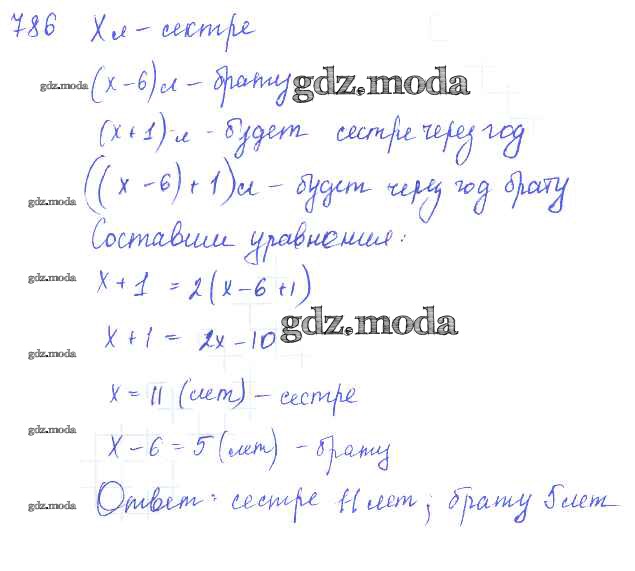 786 X л - сестре
gdz.moda (x-6) л - брату gdz.moda
(x+1) л - будет сестре через год
gdz.moda ((x-6)+1) л - будет через год брату
Составим уравнения:
gdz.moda x+1 = 2(x-6+1)
gdz.moda
x+1 = 2x-10
gdz.moda
x = 11 (лет) - сестре
gdz.moda
x-6 = 5 (лет) - брату
gdz.moda Ответ: сестре 11 лет; брату 5 лет